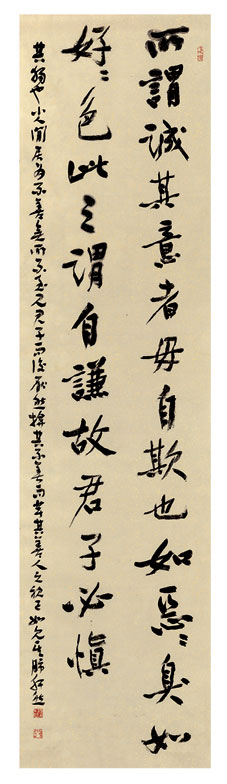 所謂誠其意者毋自欺也如惡〻臭如
好〻色此之謂自謙故君子必慎
其獨也小人閒居為不善無所不至見君子而後厭然揜其不善而著其善人之視己如見其肺肝然